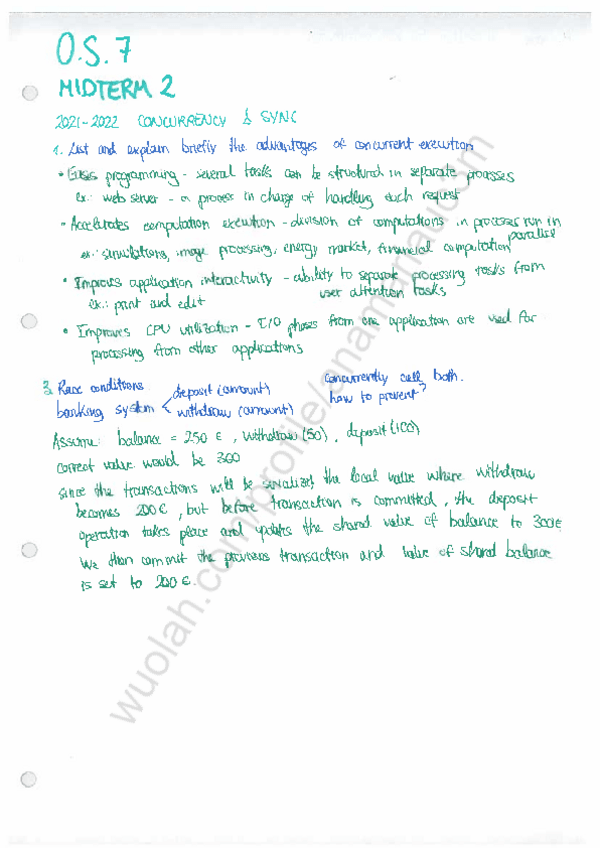 O.S. 7
MIDTERM 2
2021-2022 CONCURRENCY & SYNC
1. List and explain briefly the advantages of concurrent execution
• Eases programming - several tasks can be structured in separate processes
ex.: web server - a process in charge of handling each request
• Accelerates computation execution - division of computations in processes run in
parallel
ex.: simulations, image processing, energy market, financial computation
• Improves application interactivity - ability to separate processing tasks from
user attention tasks
ex.: print and edit
• Improves CPU utilization - I/O phases from one application are used for
processing from other applications
3. Race conditions
banking system < deposit (amount)
withdraw (amount)
concurrently call both.
how to prevent?
Assume: balance = 250 €, withdraw (50), deposit (100)
correct value would be 300
since the transactions will be serialized, the local value where withdraw
becomes 200€, but before transaction is committed, the deposit
operation takes place and updates the shared value of balance to 300€
We then commit the previous transaction and value of shared balance
is set to 200 €.
wuolah.com/profile/anamanau